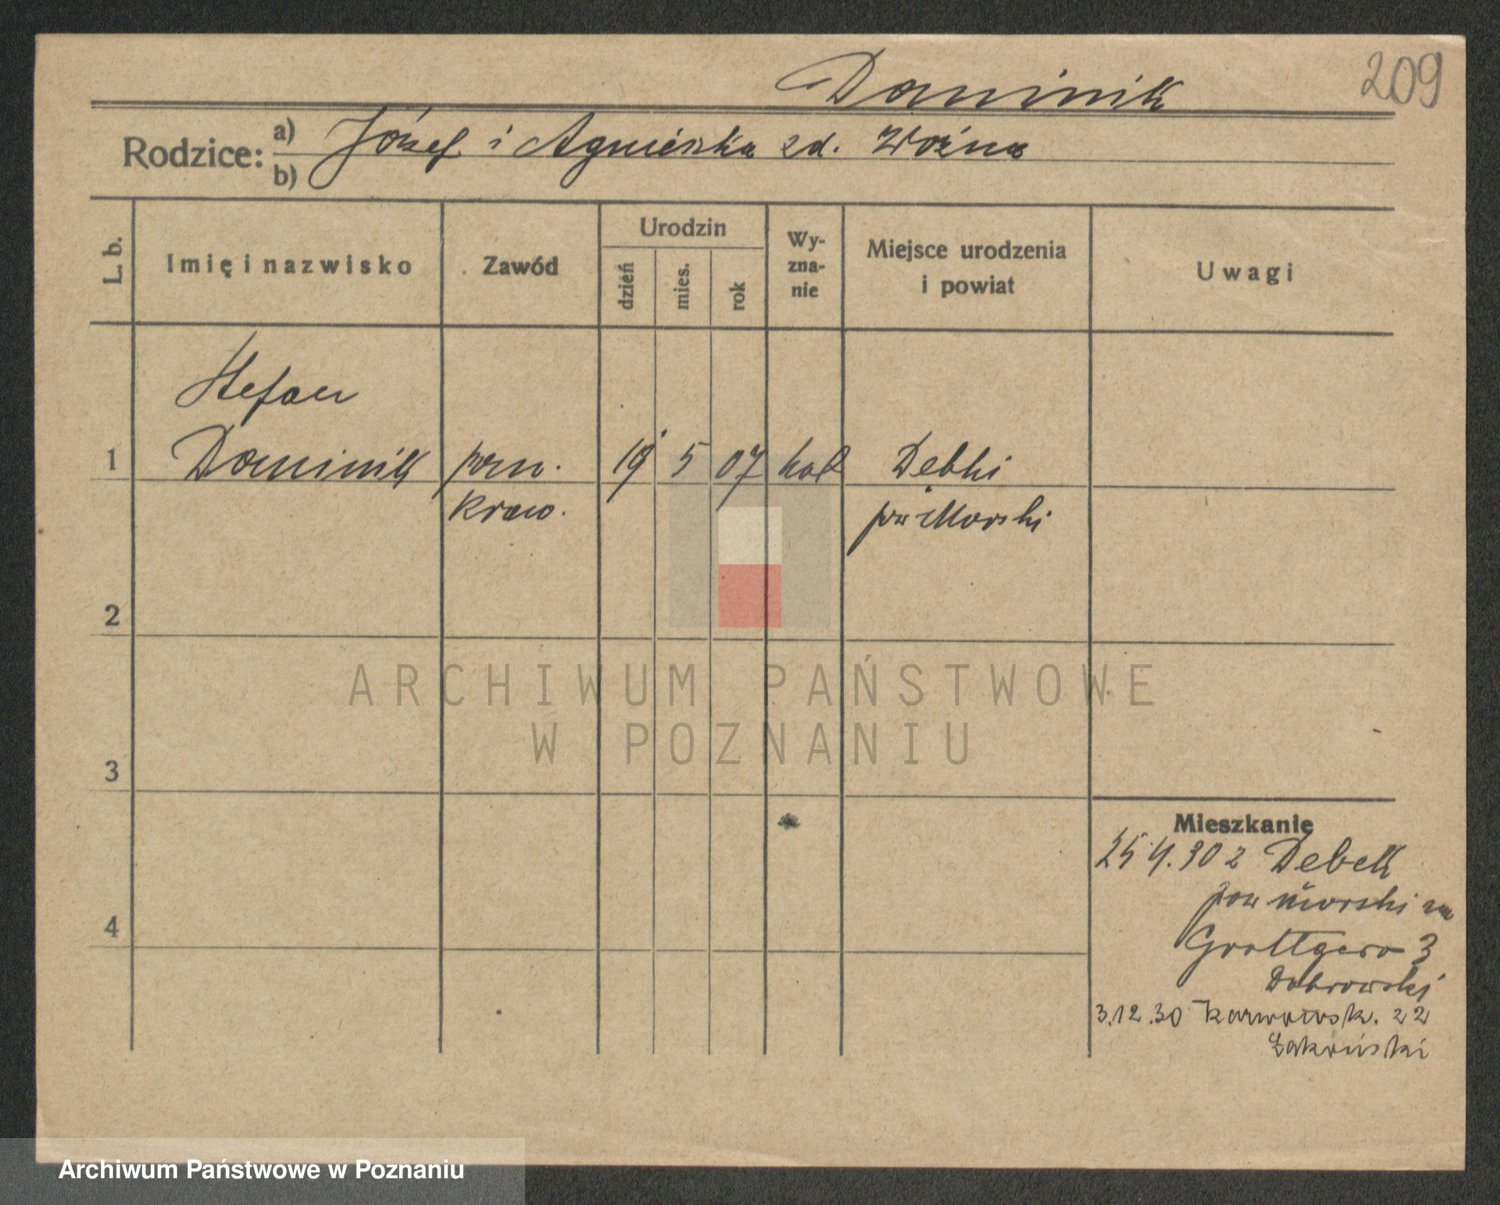 209
Dominik
Rodzice: a) Józef i Agnieszka zd. Woźna
b)
L. b. Imię i nazwisko Zawód Urodzin dzień mies. rok Wy-zna-nie Miejsce urodzenia i powiat Uwagi
Stefan
1 Dominik pom. 19 5 07 kat Debki
kraw. pow Morski
2
ARCHIWUM PAŃSTWOWE
W POZNANIU
3
Mieszkanie
25 9.30 z Debek
pow morski na
4
Grottgera 3
Dobrowski
3.12.30 Karwowsk. 22
Archiwum Państwowe w Poznaniu